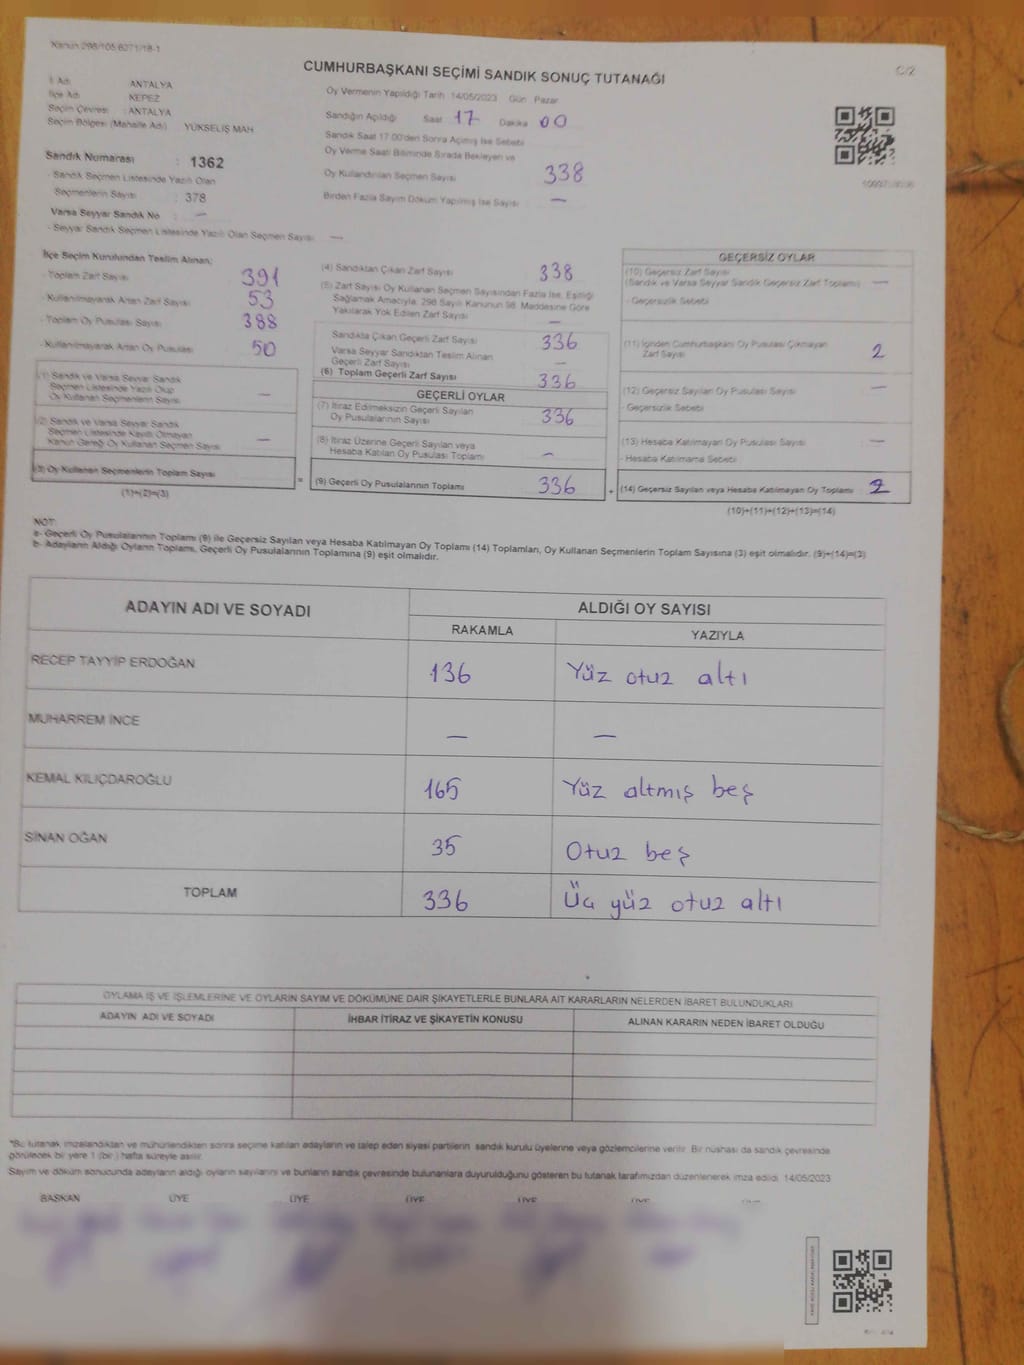 Kanun:298/105,6271/18-1
C/2
CUMHURBAŞKANI SEÇİMİ SANDIK SONUÇ TUTANAĞI
İl Adı : ANTALYA
İlçe Adı : KEPEZ
Seçim Çevresi : ANTALYA
Seçim Bölgesi (Mahalle Adı) YÜKSELİŞ MAH
Sandık Numarası : 1362
- Sandık Seçmen Listesinde Yazılı Olan
Seçmenlerin Sayısı : 378
Varsa Seyyar Sandık No : —
- Seyyar Sandık Seçmen Listesinde Yazılı Olan Seçmen Sayısı : —
Oy Vermenin Yapıldığı Tarih 14/05/2023 Gün Pazar
Sandığın Açıldığı Saat 17 Dakika 00
Sandık Saat 17:00'den Sonra Açılmış İse Sebebi
Oy Verme Saati Bitiminde Sırada Bekleyen ve
Oy Kullandırılan Seçmen Sayısı 338
Birden Fazla Sayım Döküm Yapılmış İse Sayısı —
İlçe Seçim Kurulundan Teslim Alınan;
- Toplam Zarf Sayısı 391
- Kullanılmayarak Artan Zarf Sayısı 53
- Toplam Oy Pusulası Sayısı 388
- Kullanılmayarak Artan Oy Pusulası 50
(1) Sandık ve Varsa Seyyar Sandık
Seçmen Listesinde Yazılı Olup
Oy Kullanan Seçmenlerin Sayısı —
(2) Sandık ve Varsa Seyyar Sandık
Seçmen Listesinde Kayıtlı Olmayan
Kanun Gereği Oy Kullanan Seçmen Sayısı —
(3) Oy Kullanan Seçmenlerin Toplam Sayısı
(1)+(2)=(3)
(4) Sandıktan Çıkan Zarf Sayısı 338
(5) Zarf Sayısı Oy Kullanan Seçmen Sayısından Fazla İse, Eşitliği
Sağlamak Amacıyla, 298 Sayılı Kanunun 98. Maddesine Göre
Yakılarak Yok Edilen Zarf Sayısı —
Sandıkta Çıkan Geçerli Zarf Sayısı 336
Varsa Seyyar Sandıktan Teslim Alınan
Geçerli Zarf Sayısı —
(6) Toplam Geçerli Zarf Sayısı 336
GEÇERLİ OYLAR
(7) İtiraz Edilmeksizin Geçerli Sayılan
Oy Pusulalarının Sayısı 336
(8) İtiraz Üzerine Geçerli Sayılan veya
Hesaba Katılan Oy Pusulası Toplamı —
= (9) Geçerli Oy Pusulalarının Toplamı 336
GEÇERSİZ OYLAR
(10) Geçersiz Zarf Sayısı
(Sandık ve Varsa Seyyar Sandık Geçersiz Zarf Toplamı) —
- Geçersizlik Sebebi
(11) İçinden Cumhurbaşkanı Oy Pusulası Çıkmayan
Zarf Sayısı 2
(12) Geçersiz Sayılan Oy Pusulası Sayısı —
- Geçersizlik Sebebi
(13) Hesaba Katılmayan Oy Pusulası Sayısı —
- Hesaba Katılmama Sebebi
+ (14) Geçersiz Sayılan veya Hesaba Katılmayan Oy Toplamı 2
(10)+(11)+(12)+(13)=(14)
NOT:
a- Geçerli Oy Pusulalarının Toplamı (9) ile Geçersiz Sayılan veya Hesaba Katılmayan Oy Toplamı (14) Toplamları, Oy Kullanan Seçmenlerin Toplam Sayısına (3) eşit olmalıdır. (9)+(14)=(3)
b- Adayların Aldığı Oyların Toplamı, Geçerli Oy Pusulalarının Toplamına (9) eşit olmalıdır.
ADAYIN ADI VE SOYADI
ALDIĞI OY SAYISI
RAKAMLA YAZIYLA
RECEP TAYYİP ERDOĞAN 136 Yüz otuz altı
MUHARREM İNCE — —
KEMAL KILIÇDAROĞLU 165 Yüz altmış beş
SİNAN OĞAN 35 Otuz beş
TOPLAM 336 Üç yüz otuz altı
OYLAMA İŞ VE İŞLEMLERİNE VE OYLARIN SAYIM VE DÖKÜMÜNE DAİR ŞİKAYETLERLE BUNLARA AİT KARARLARIN NELERDEN İBARET BULUNDUKLARI
ADAYIN ADI VE SOYADI İHBAR İTİRAZ VE ŞİKAYETİN KONUSU ALINAN KARARIN NEDEN İBARET OLDUĞU
*Bu tutanak imzalandıktan ve mühürlendikten sonra seçime katılan adayların ve talep eden siyasi partilerin sandık kurulu üyelerine veya gözlemcilerine verilir. Bir nüshası da sandık çevresinde
görülecek bir yere 1 (bir) hafta süreyle asılır.
Sayım ve döküm sonucunda adayların aldığı oyların sayılarını ve bunların sandık çevresinde bulunanlara duyurulduğunu gösteren bu tutanak tarafımızdan düzenlenerek imza edildi. 14/05/2023
BAŞKAN ÜYE ÜYE ÜYE ÜYE ÜYE